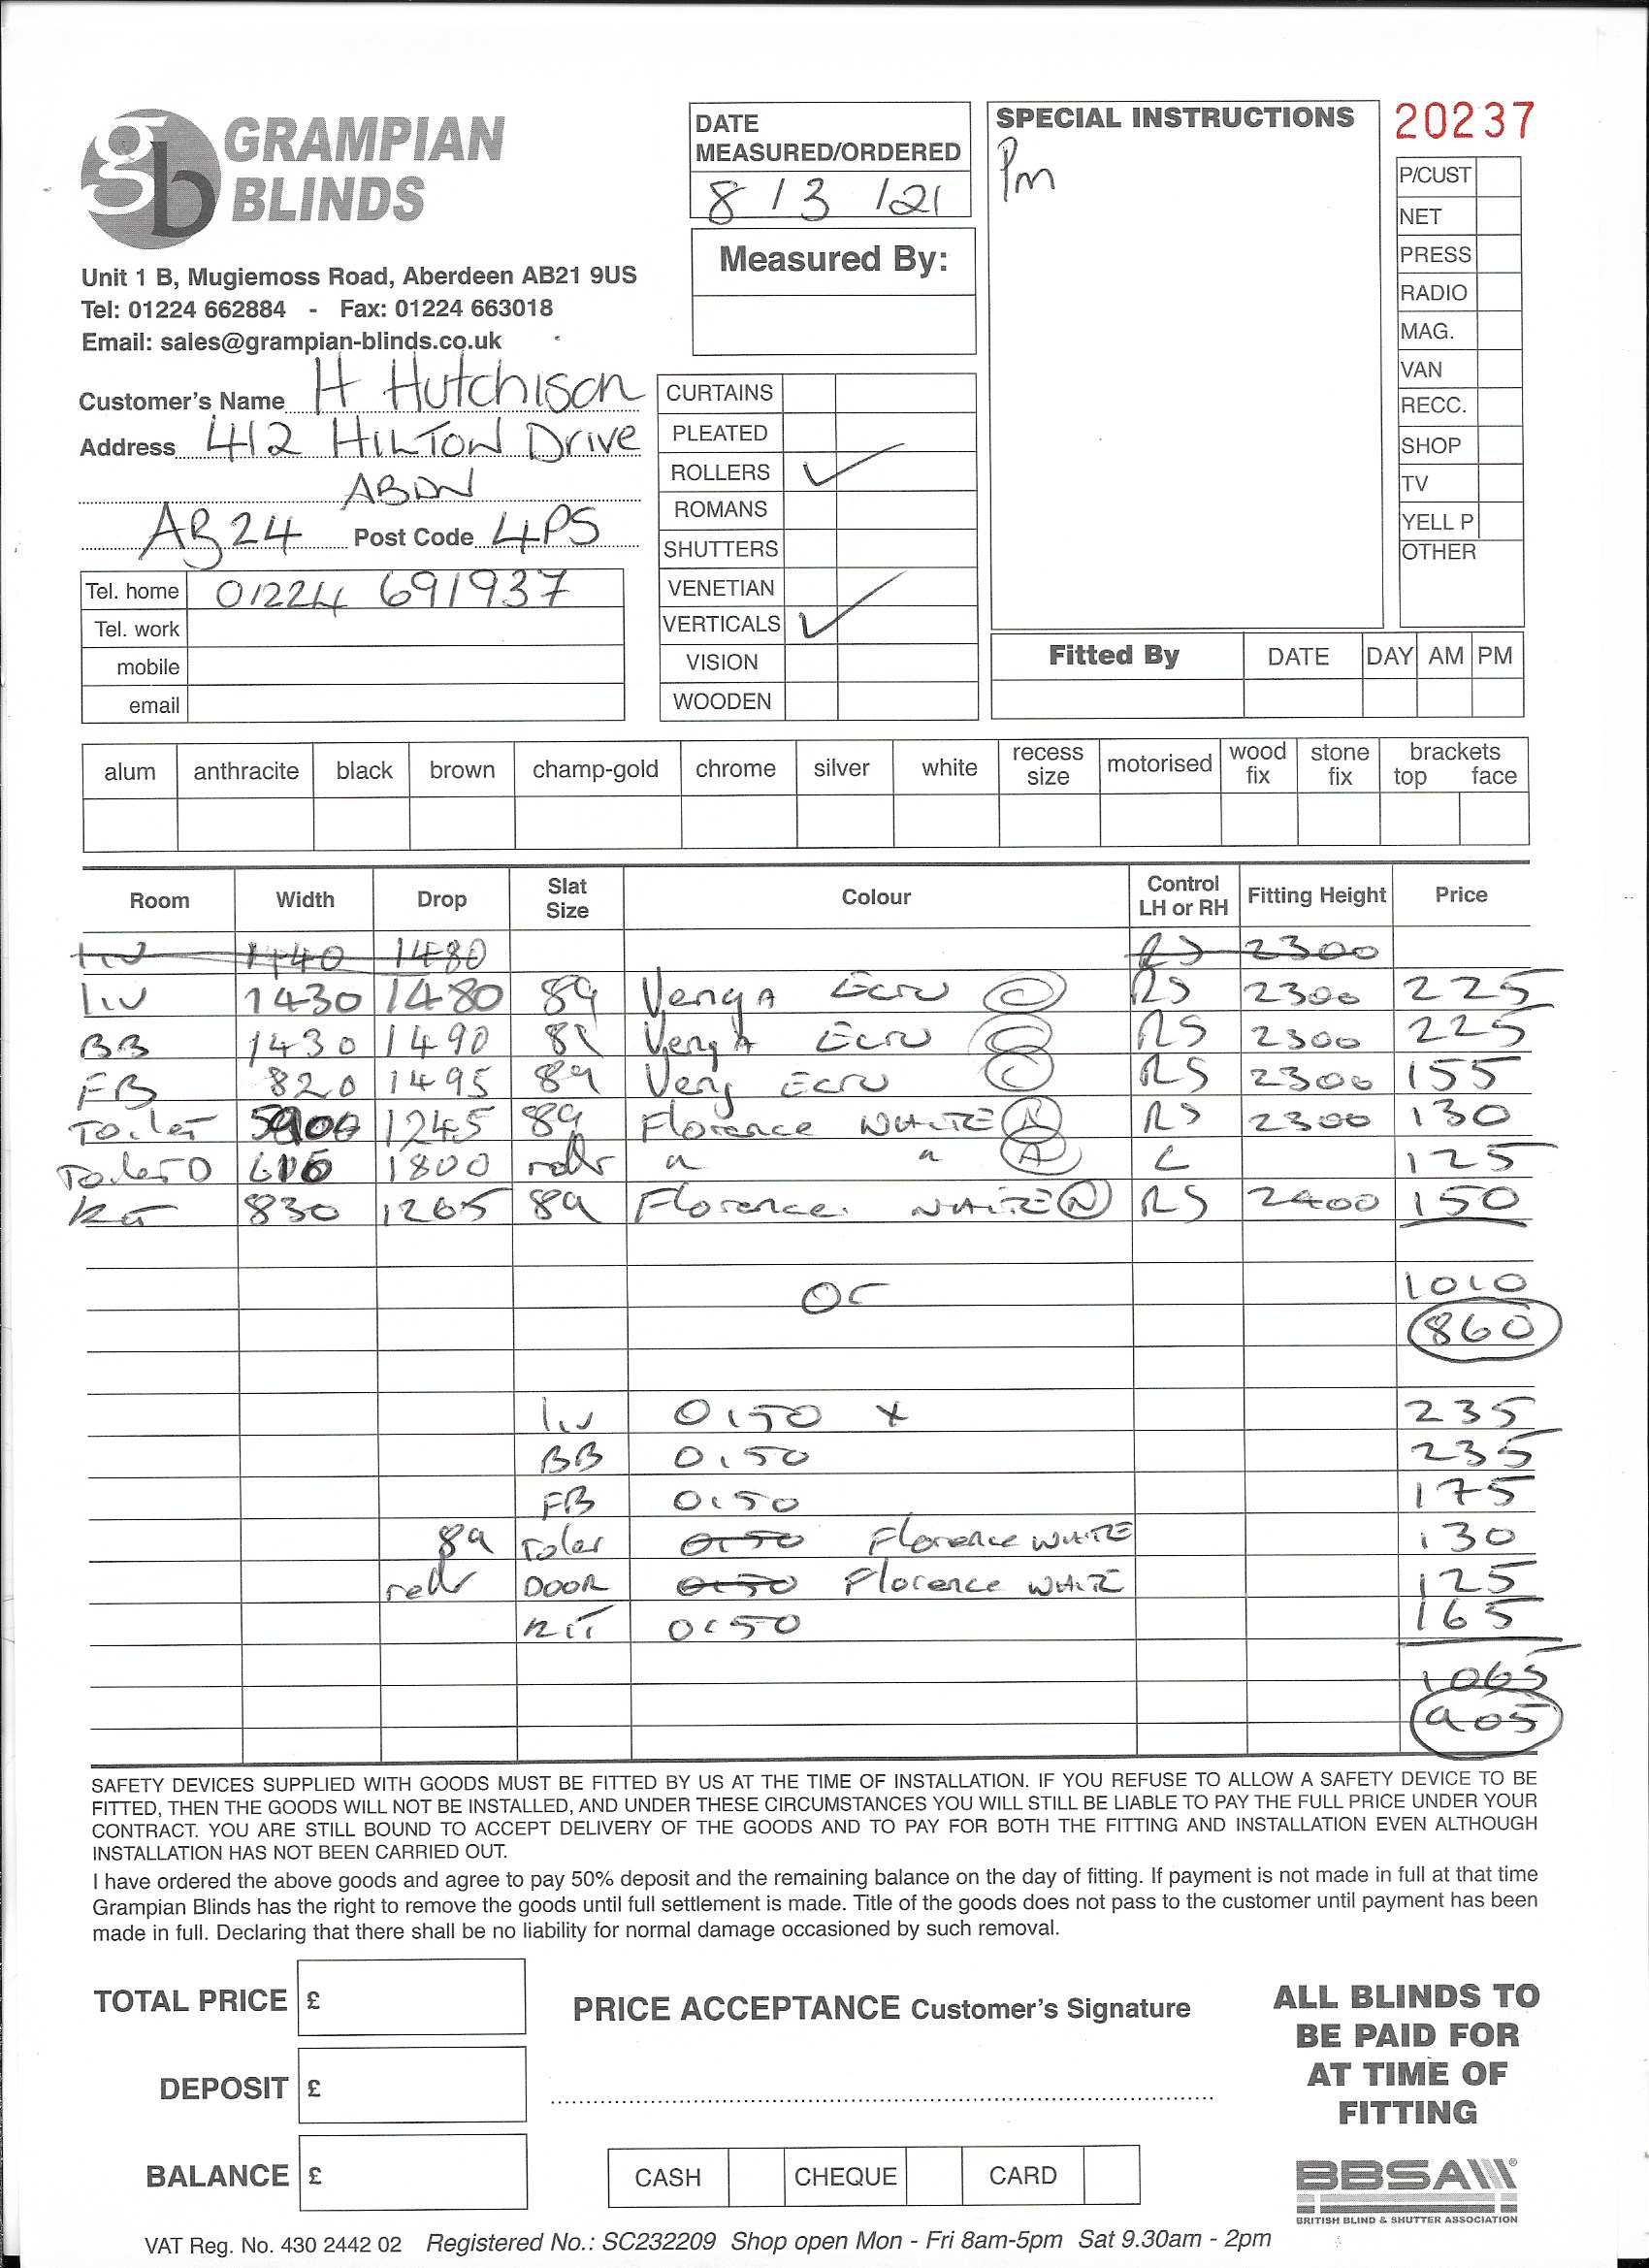 GRAMPIAN BLINDS
Unit 1 B, Mugiemoss Road, Aberdeen AB21 9US
Tel: 01224 662884 - Fax: 01224 663018
Email: sales@grampian-blinds.co.uk
Customer's Name H Hutchison
Address 412 HILTON Drive
ABDN
AB24 Post Code 4PS
Tel. home 01224 691937
Tel. work
mobile
email
DATE MEASURED/ORDERED
8 / 3 / 21
Measured By:
CURTAINS
PLEATED
ROLLERS ✓
ROMANS
SHUTTERS
VENETIAN
VERTICALS ✓
VISION
WOODEN
SPECIAL INSTRUCTIONS
Pm
20237
P/CUST
NET
PRESS
RADIO
MAG.
VAN
RECC.
SHOP
TV
YELL P
OTHER
Fitted By DATE DAY AM PM
alum anthracite black brown champ-gold chrome silver white recess size motorised wood fix stone fix brackets top face
Room Width Drop Slat Size Colour Control LH or RH Fitting Height Price
Liv 1140 1480 RS 2300
Liv 1430 1480 89 Venga Ecru C RS 2300 225
BB 1430 1490 89 Venga Ecru C RS 2300 225
FB 820 1495 89 Veng Ecru C RS 2300 155
Toilet 1245 89 Florence WHITE RS 2300 130
Toilet D 1800 rollr " " A L 125
Kit 830 1265 89 Florence WHITE RS 2400 150
1010
or
860
Liv 0150 x 235
BB 0150 235
FB 0150 175
89 Toilet 0150 Florence WHITE 130
rollr DOOR 0150 Florence WHITE 125
KIT 0150 165
1065
905
SAFETY DEVICES SUPPLIED WITH GOODS MUST BE FITTED BY US AT THE TIME OF INSTALLATION. IF YOU REFUSE TO ALLOW A SAFETY DEVICE TO BE
FITTED, THEN THE GOODS WILL NOT BE INSTALLED, AND UNDER THESE CIRCUMSTANCES YOU WILL STILL BE LIABLE TO PAY THE FULL PRICE UNDER YOUR
CONTRACT. YOU ARE STILL BOUND TO ACCEPT DELIVERY OF THE GOODS AND TO PAY FOR BOTH THE FITTING AND INSTALLATION EVEN ALTHOUGH
INSTALLATION HAS NOT BEEN CARRIED OUT.
I have ordered the above goods and agree to pay 50% deposit and the remaining balance on the day of fitting. If payment is not made in full at that time
Grampian Blinds has the right to remove the goods until full settlement is made. Title of the goods does not pass to the customer until payment has been
made in full. Declaring that there shall be no liability for normal damage occasioned by such removal.
TOTAL PRICE £
DEPOSIT £
BALANCE £
PRICE ACCEPTANCE Customer's Signature
CASH CHEQUE CARD
ALL BLINDS TO
BE PAID FOR
AT TIME OF
FITTING
BBSA
BRITISH BLIND & SHUTTER ASSOCIATION
VAT Reg. No. 430 2442 02 Registered No.: SC232209 Shop open Mon - Fri 8am-5pm Sat 9.30am - 2pm